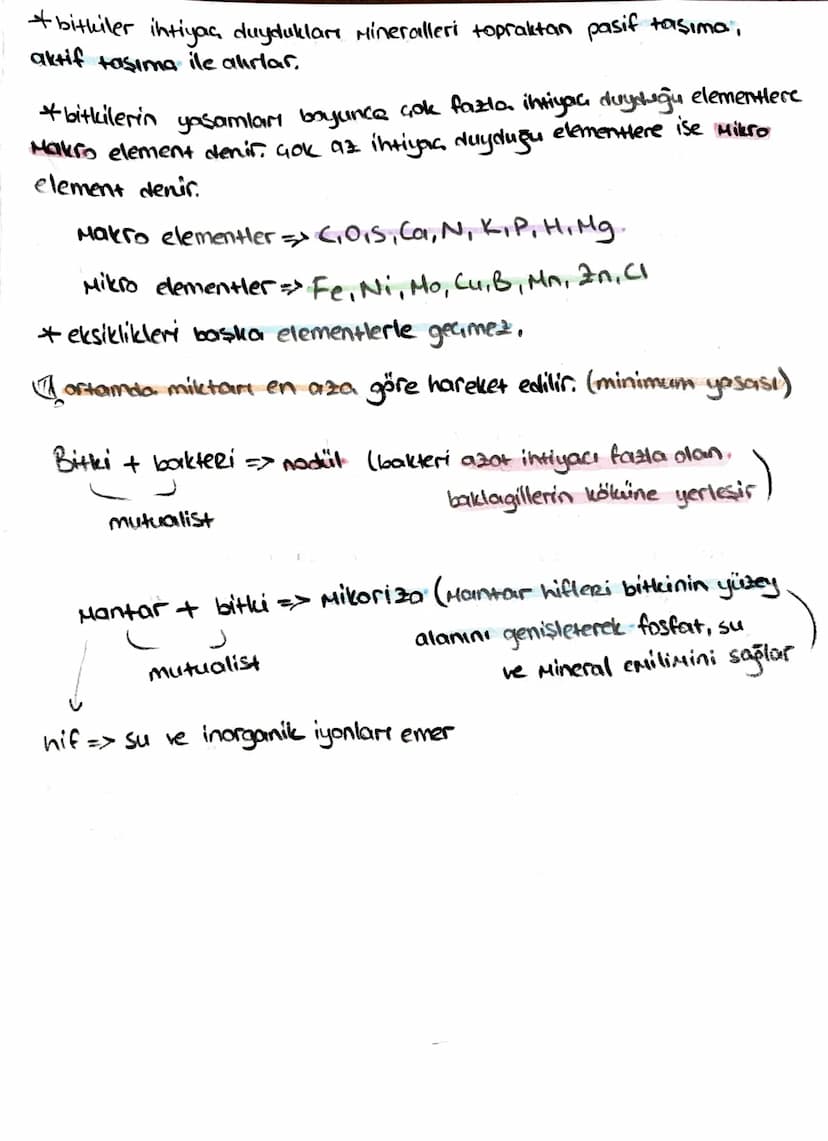 *bitkiler ihtiyaç duydukları Mineralleri topraktan pasif taşıma,
aktif taşıma ile alırlar.
*bitkilerin yaşamları boyunca çok fazla ihtiyacı duyduğu elementlere
Makro element denir. çok az ihtiyaç duyduğu elementlere ise Mikro
element denir.
Makro elementler => C,O,S,Ca,N,K,P,H,Mg.
Mikro elementler => Fe,Ni,Mo,Cu,B,Mn,Zn,Cl
* eksiklikleri başka elementlerle geçmez,
ortamda miktarı en aza göre hareket edilir. (minimum yasası)
Bitki + bakteri => nodül (bakteri azot ihtiyacı fazla olan
baklagillerin köküne yerleşir)
mutualist
Mantar + bitki => Mikoriza (Mantar hifleri bitkinin yüzey
alanını genişleterek fosfat, su
mutualist
ve Mineral emilimini sağlar)
hif => su ve inorganik iyonları emer